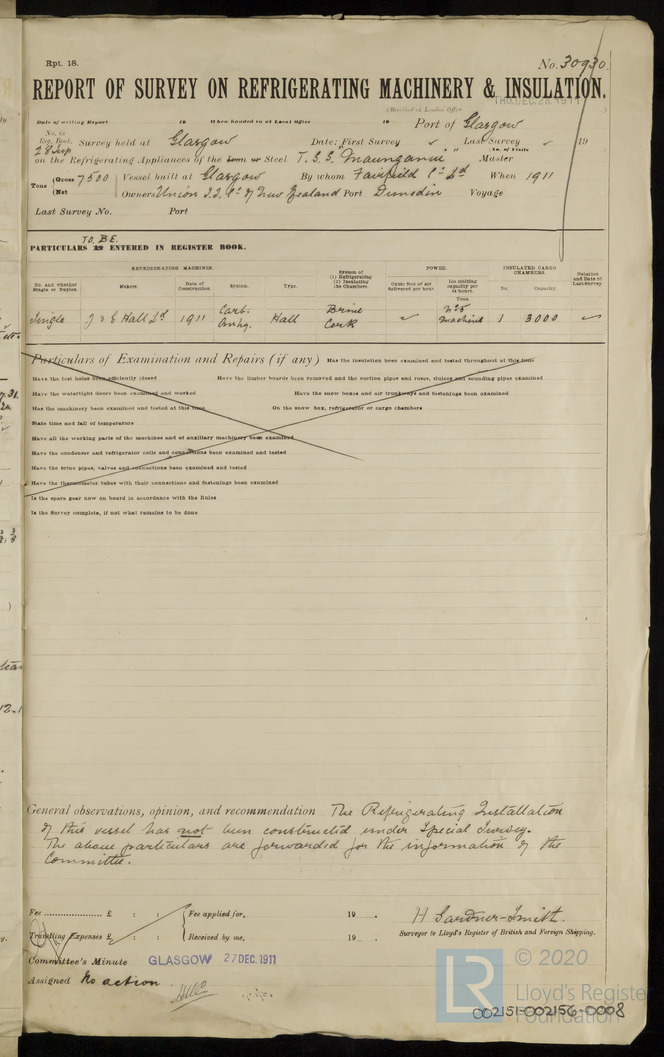 Rpt. 18.
No. 30930.
REPORT OF SURVEY ON REFRIGERATING MACHINERY & INSULATION.
THU. DEC. 28. 1911
(Received at London Office
Date of writing Report 19 When handed in at Local Office 19 Port of Glasgow
No. in Reg. Book. Survey held at Glasgow Date: First Survey " Last Survey " 19
28 Sup
No. of Visits
on the Refrigerating Appliances of the Iron or Steel T.S.S. "Maunganui" Master
Tons {Gross 7500 Vessel built at Glasgow By whom Fairfield Co Ld When 1911
{Net Owners Union S.S. Co of New Zealand Port Dunedin Voyage
Last Survey No. Port
TO BE
PARTICULARS AS ENTERED IN REGISTER BOOK.
REFRIGERATING MACHINES. System of (1) Refrigerating (2) Insulating the Chambers. POWER. INSULATED CARGO CHAMBERS. Notation and Date of Last Survey
No. and whether Single or Duplex. Makers. Date of Construction. System. Type. Cubic feet of air delivered per hour. Ice melting capacity per 24 hours. Tons. No. Capacity.
Single J & E Hall Ld 1911 Carb. Anhy. Hall Brine Cork No 5 machine 1 3000
Particulars of Examination and Repairs (if any) Has the insulation been examined and tested throughout at this time
Have the test holes been efficiently closed Have the limber boards been removed and the suction pipes and roses, sluices and sounding pipes examined
Have the watertight doors been examined and worked Have the snow boxes and air trunkways and fastenings been examined
Has the machinery been examined and tested at this time On the snow box, refrigerator or cargo chambers
State time and fall of temperature
Have all the working parts of the machines and of auxiliary machinery been examined
Have the condenser and refrigerator coils and connections been examined and tested
Have the brine pipes, valves and connections been examined and tested
Have the thermometer tubes with their connections and fastenings been examined
Is the spare gear now on board in accordance with the Rules
Is the Survey complete, if not what remains to be done
General observations, opinion, and recommendation The Refrigerating Installation
of this vessel has not been constructed under Special Survey.
The above particulars are forwarded for the information of the
Committee.
Fee £ : : Fee applied for, 19 H Gardner-Smith.
Travelling Expenses £ : : Received by me, 19 Surveyor to Lloyd's Register of British and Foreign Shipping.
Committee's Minute GLASGOW 27 DEC. 1911
Assigned No action
© 2020
LR
Lloyd's Register
Foundation
002151-002156-0008